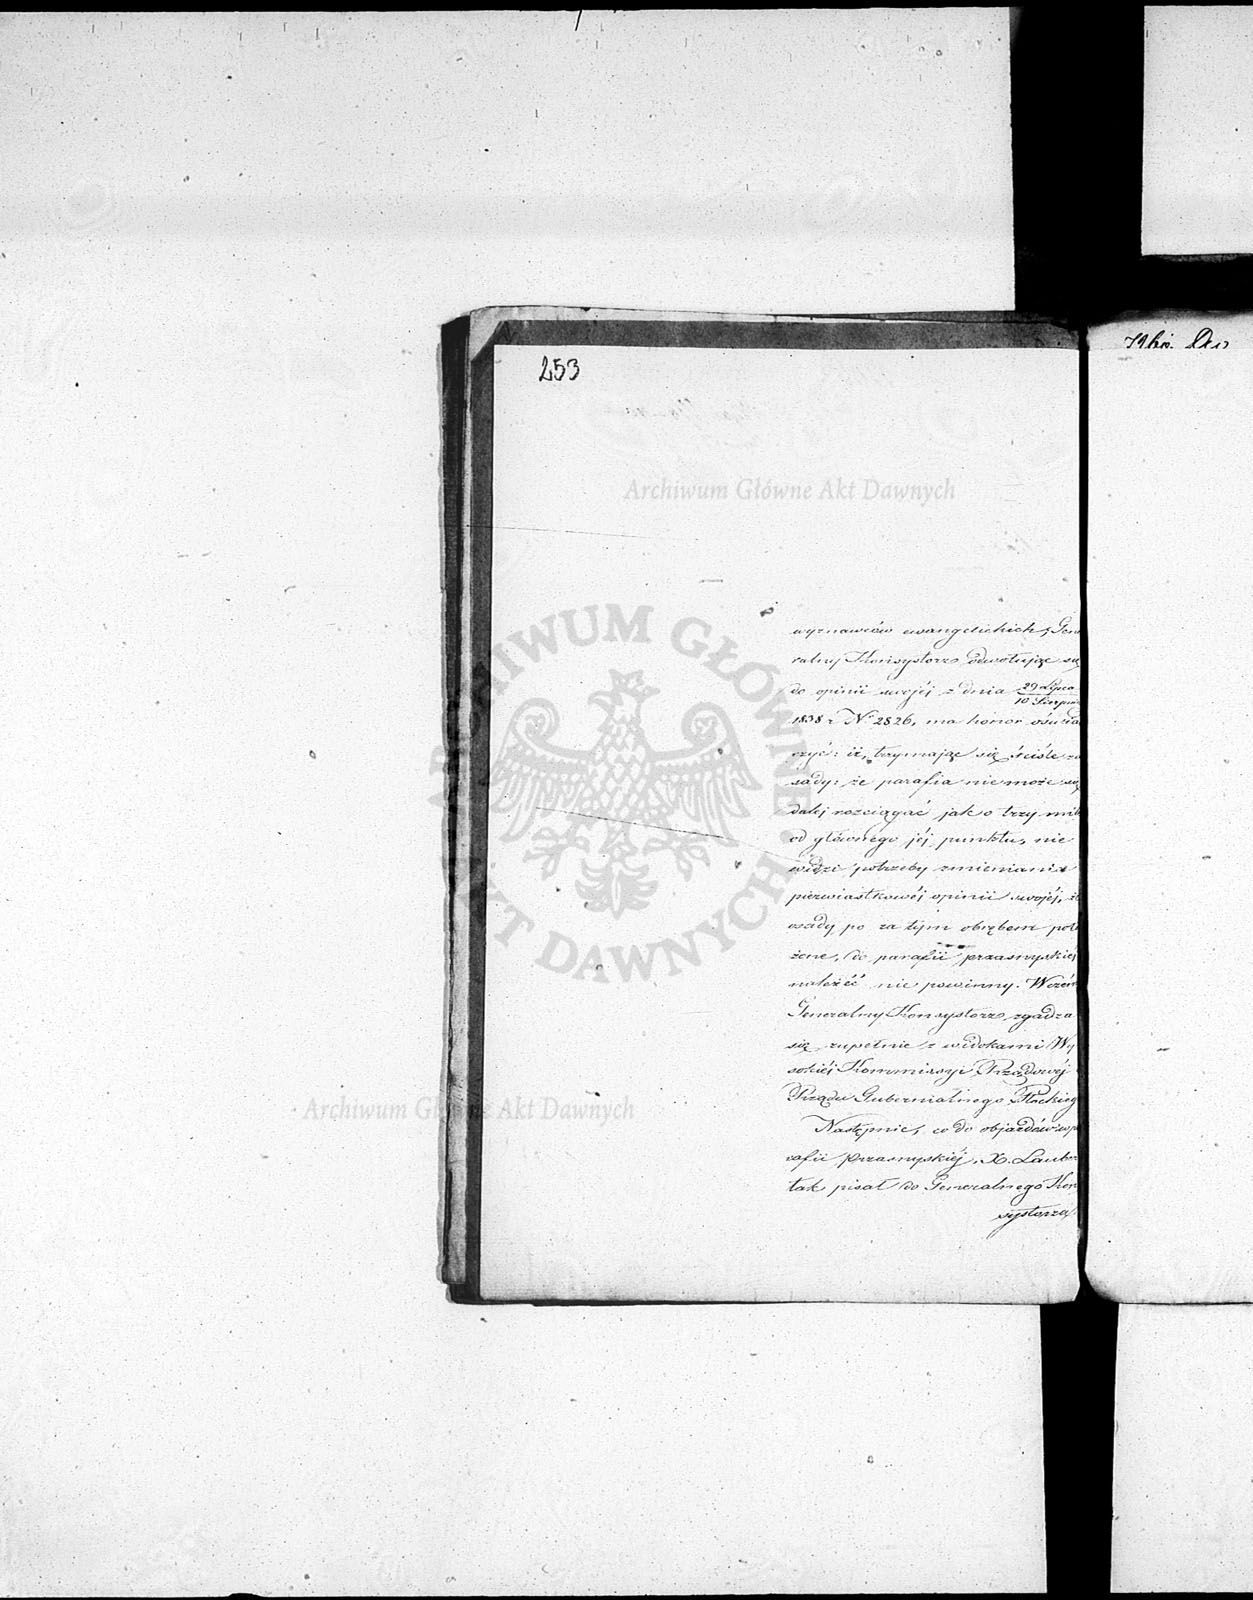 253
wyznawców ewangelickich, Gene
ralny Konsystorz odwołując się
do opinii swojéj z dnia 29 Lipca
10 Sierpnia
1838 r. Nr 2826, ma honor oświad
czyć: iż, trzymając się ściśle za
sady: że parafia nie może się
dalej rozciągać jak o trzy mile
od głównego jéj punktu, nie
widzi potrzeby zmieniania
pierwiastkowéj opinii swojéj, że
osady po za tym obrębem poło
żone, do parafii przasnyskiéj
należéć nie powinny.
Generalny Konsystorz zgadza
się zupełnie z widokami Wy
sokiéj Kommissyi Rządowéj
Rządu Gubernialnego Płockiego
Następnie, co do objazdów w pa
rafii Przasnyskiéj, X. Lauber
tak pisał do Generalnego Kon
systorza
Archiwum Główne Akt Dawnych
ARCHIWUM GŁÓWNE AKT DAWNYCH
Archiwum Główne Akt Dawnych